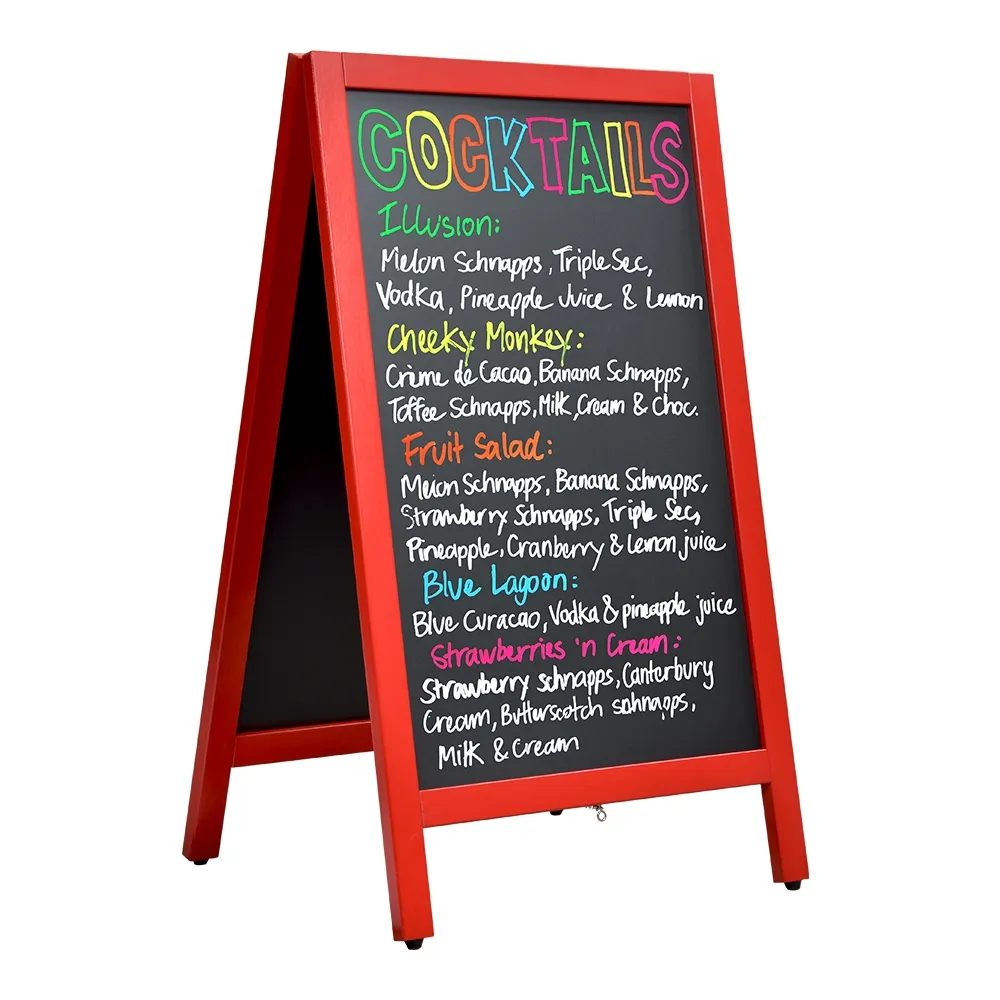 COCKTAILS
Illusion:
Melon Schnapps, Triple Sec,
Vodka, Pineapple Juice & Lemon
Cheeky Monkey:
Crème de Cacao, Banana Schnapps,
Toffee Schnapps, Milk, Cream & Choc.
Fruit Salad:
Melon Schnapps, Banana Schnapps,
Strawberry Schnapps, Triple Sec,
Pineapple, Cranberry & Lemon juice
Blue Lagoon:
Blue Curacao, Vodka & pineapple juice
Strawberries 'n Cream:
Strawberry schnapps, Canterbury
Cream, Butterscotch schnapps,
Milk & Cream